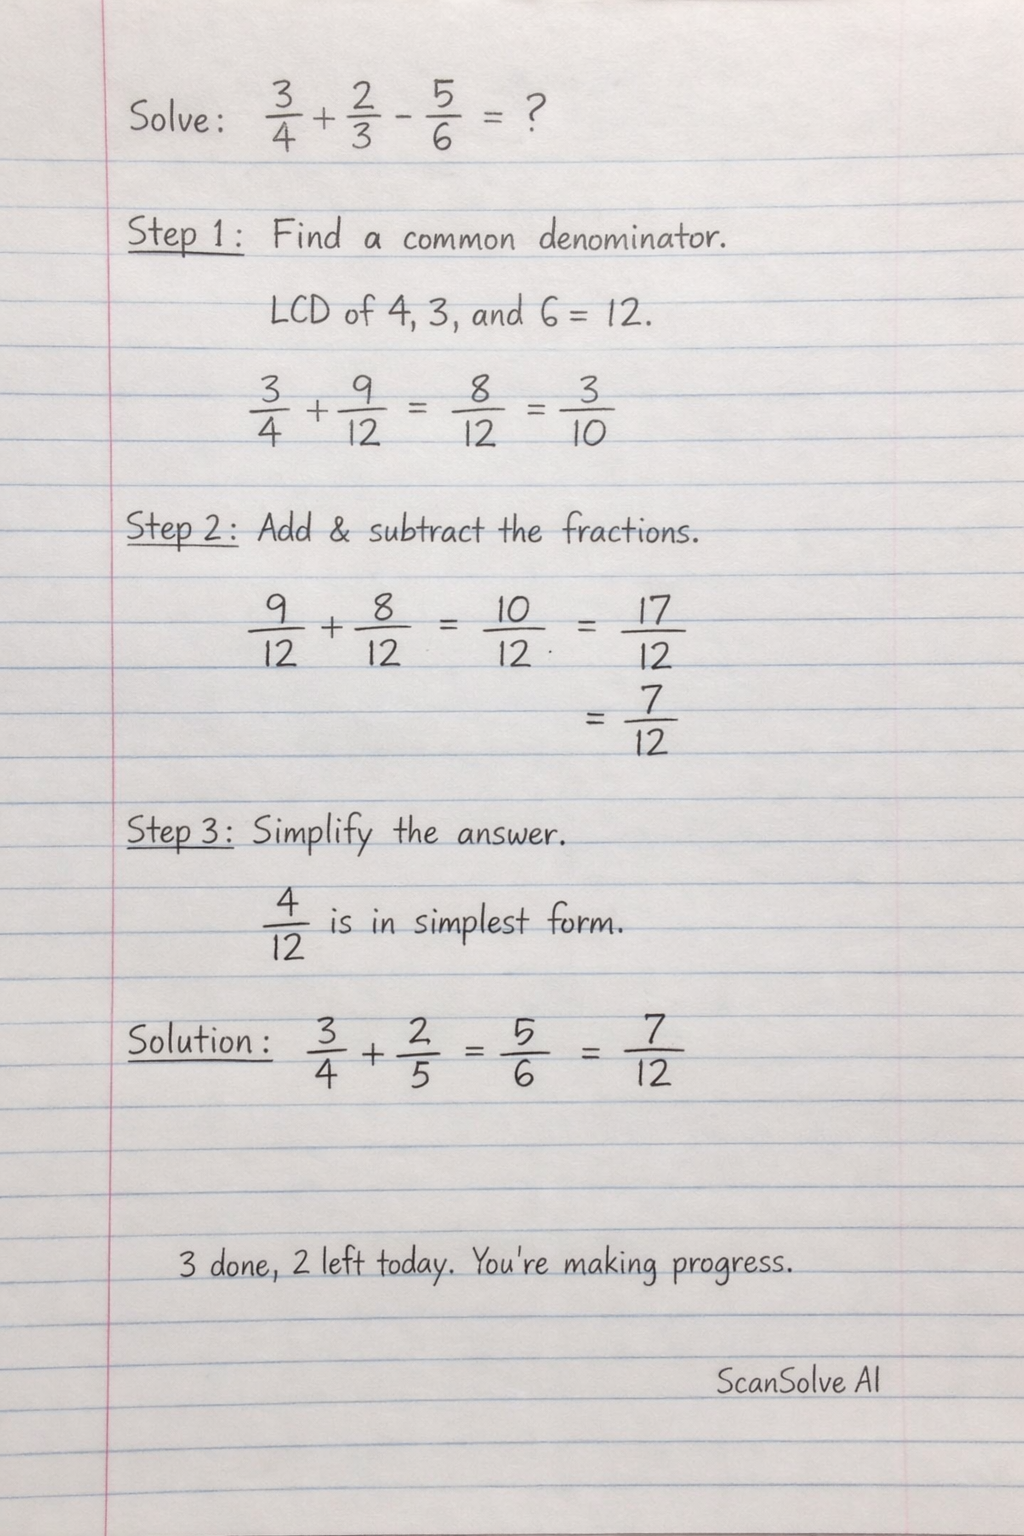 Solve: 3/4 + 2/3 - 5/6 = ?
Step 1: Find a common denominator.
LCD of 4, 3, and 6 = 12.
3/4 + 9/12 = 8/12 = 3/10
Step 2: Add & subtract the fractions.
9/12 + 8/12 = 10/12 . = 17/12
= 7/12
Step 3: Simplify the answer.
4/12 is in simplest form.
Solution: 3/4 + 2/5 = 5/6 = 7/12
3 done, 2 left today. You're making progress.
ScanSolve AI